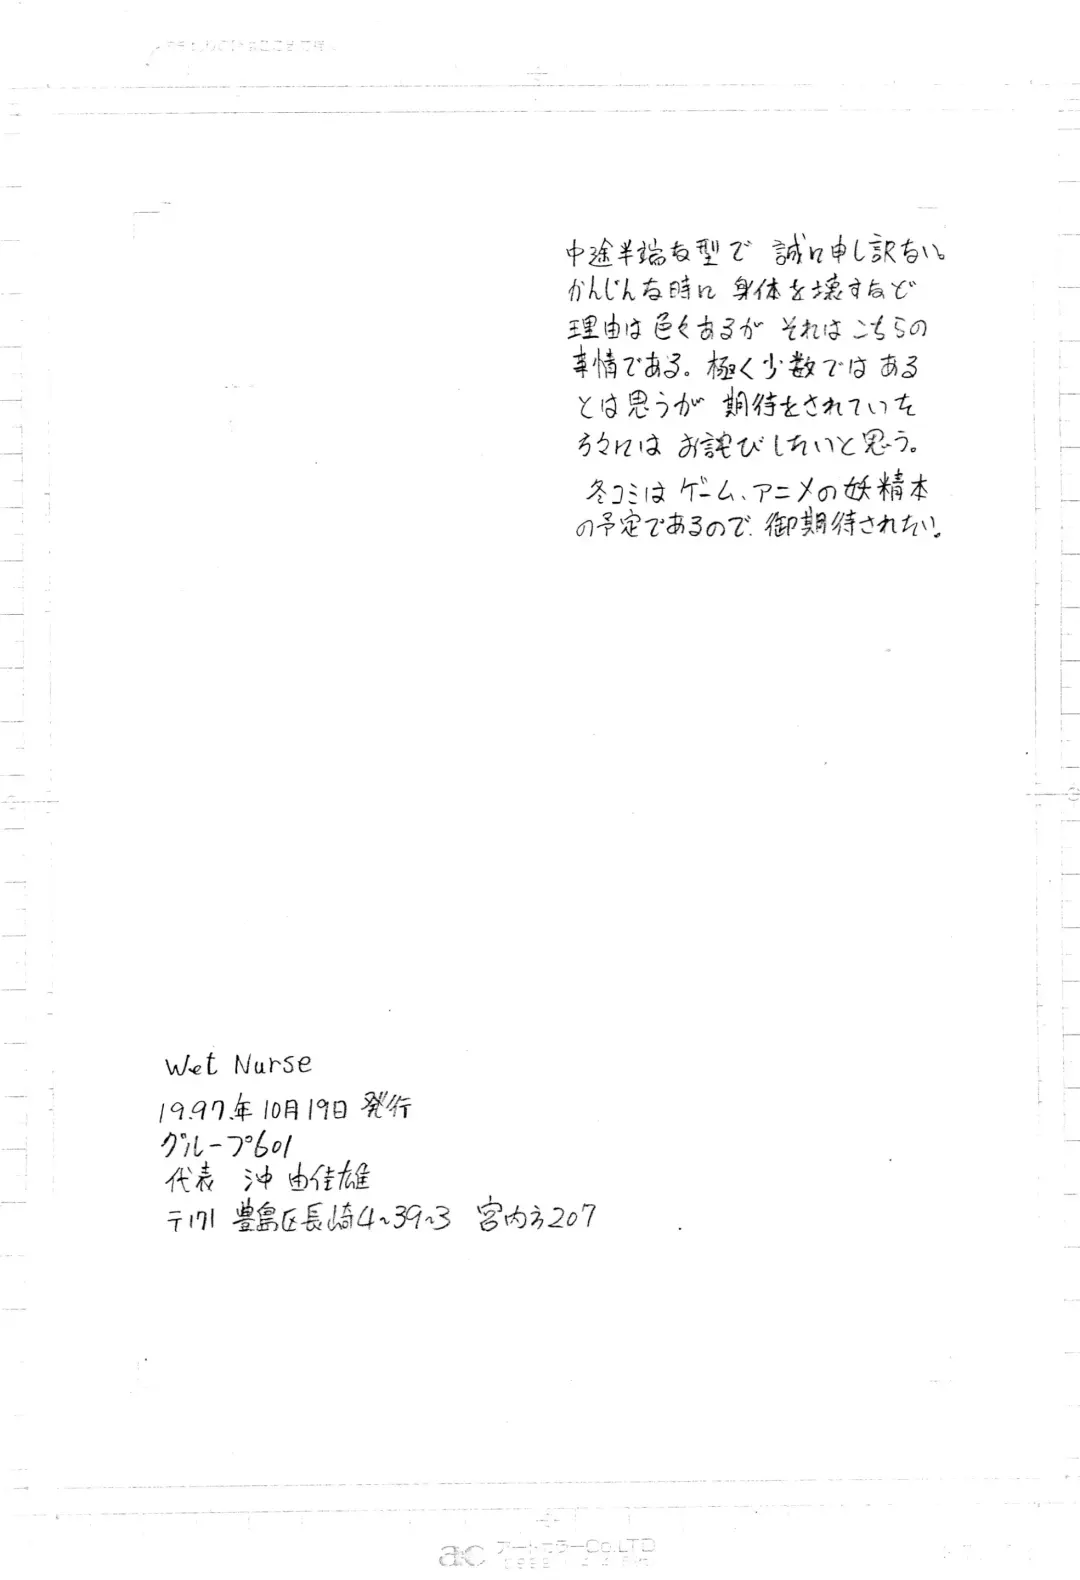 中途半端な型で 誠に申し訳ない。
かんじんな時に 身体を壊すなど
理由は色々あるが それは こちらの
事情である。極く少数では ある
とは思うが 期待をされていた
方々には お詫びしたいと思う。
冬コミは ゲーム、アニメの妖精本
の予定であるので、御期待されたい。
Wet Nurse
1997年10月19日 発行
グループ601
代表 沖 由佳雄
〒171 豊島区長崎4~39~3 宮内方207
ac アートカラーCo.LTD